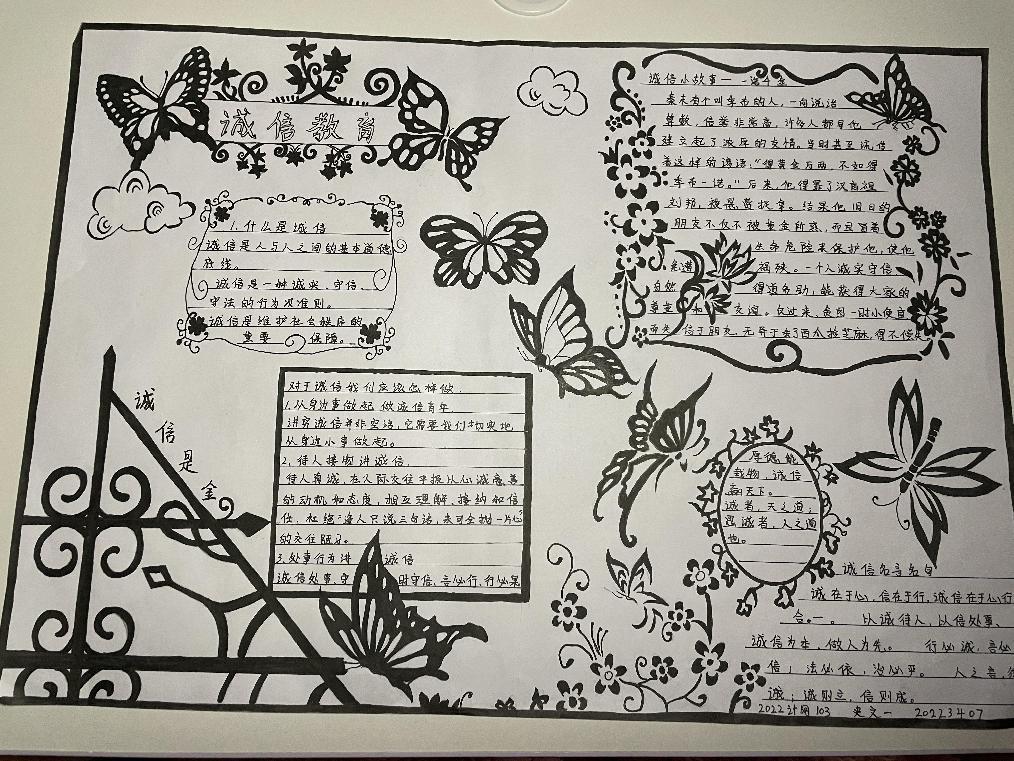 诚信教育
1.什么是诚信
诚信是人与人之间的基本道德
底线。
诚信是一种诚实、守信、
守法的行为及准则。
诚信是维护社会秩序的
重要 保障。
诚信小故事——诺千金
秦末有个叫季布的人，一向说话
算数，信誉非常高，许多人都与他
建立起了浓厚的友情。当时甚至流传
着这样的谚语：“得黄金百两，不如得
季布一诺。”后来，他得罪了汉高祖
刘邦，被悬赏捉拿。结果他旧日的
朋友不仅不被重金所惑，而且冒着
生命危险来保护他，使他
免遭 祸殃。一个人诚实守信
自然 得道多助，能获得大家的
尊重和 友谊。反过来，贪图一时小便宜
而失信于朋友，无异于丢了西瓜捡芝麻，得不偿失
对于诚信我们应该怎样做
1.从身边事做起 做诚信青年
讲究诚信并非空话，它需要我们切实地
从身边小事做起。
2.待人接物讲诚信.
待人真诚，在人际交往中报以心诚意善
的动机和态度，相互理解、接纳和信
任，杜绝“逢人只说三句话，未可全抛一片心”
的交往陋习。
3.处事行为讲 诚信
诚信处事，守 时守信，言必行，行必果
诚
信
是
金
厚德能
载物，诚信
赢天下。
诚者，天之道；
思诚者，人之道
也。
诚信名言名句
诚在于心，信在于行，诚信在于心行
合一。 以诚待人，以信处事、
诚信为本，做人为先。 行必诚，言必
信； 法必依，治必平。 人之善，
诚；诚则立，信则成。
2022计网103 文一 20223407